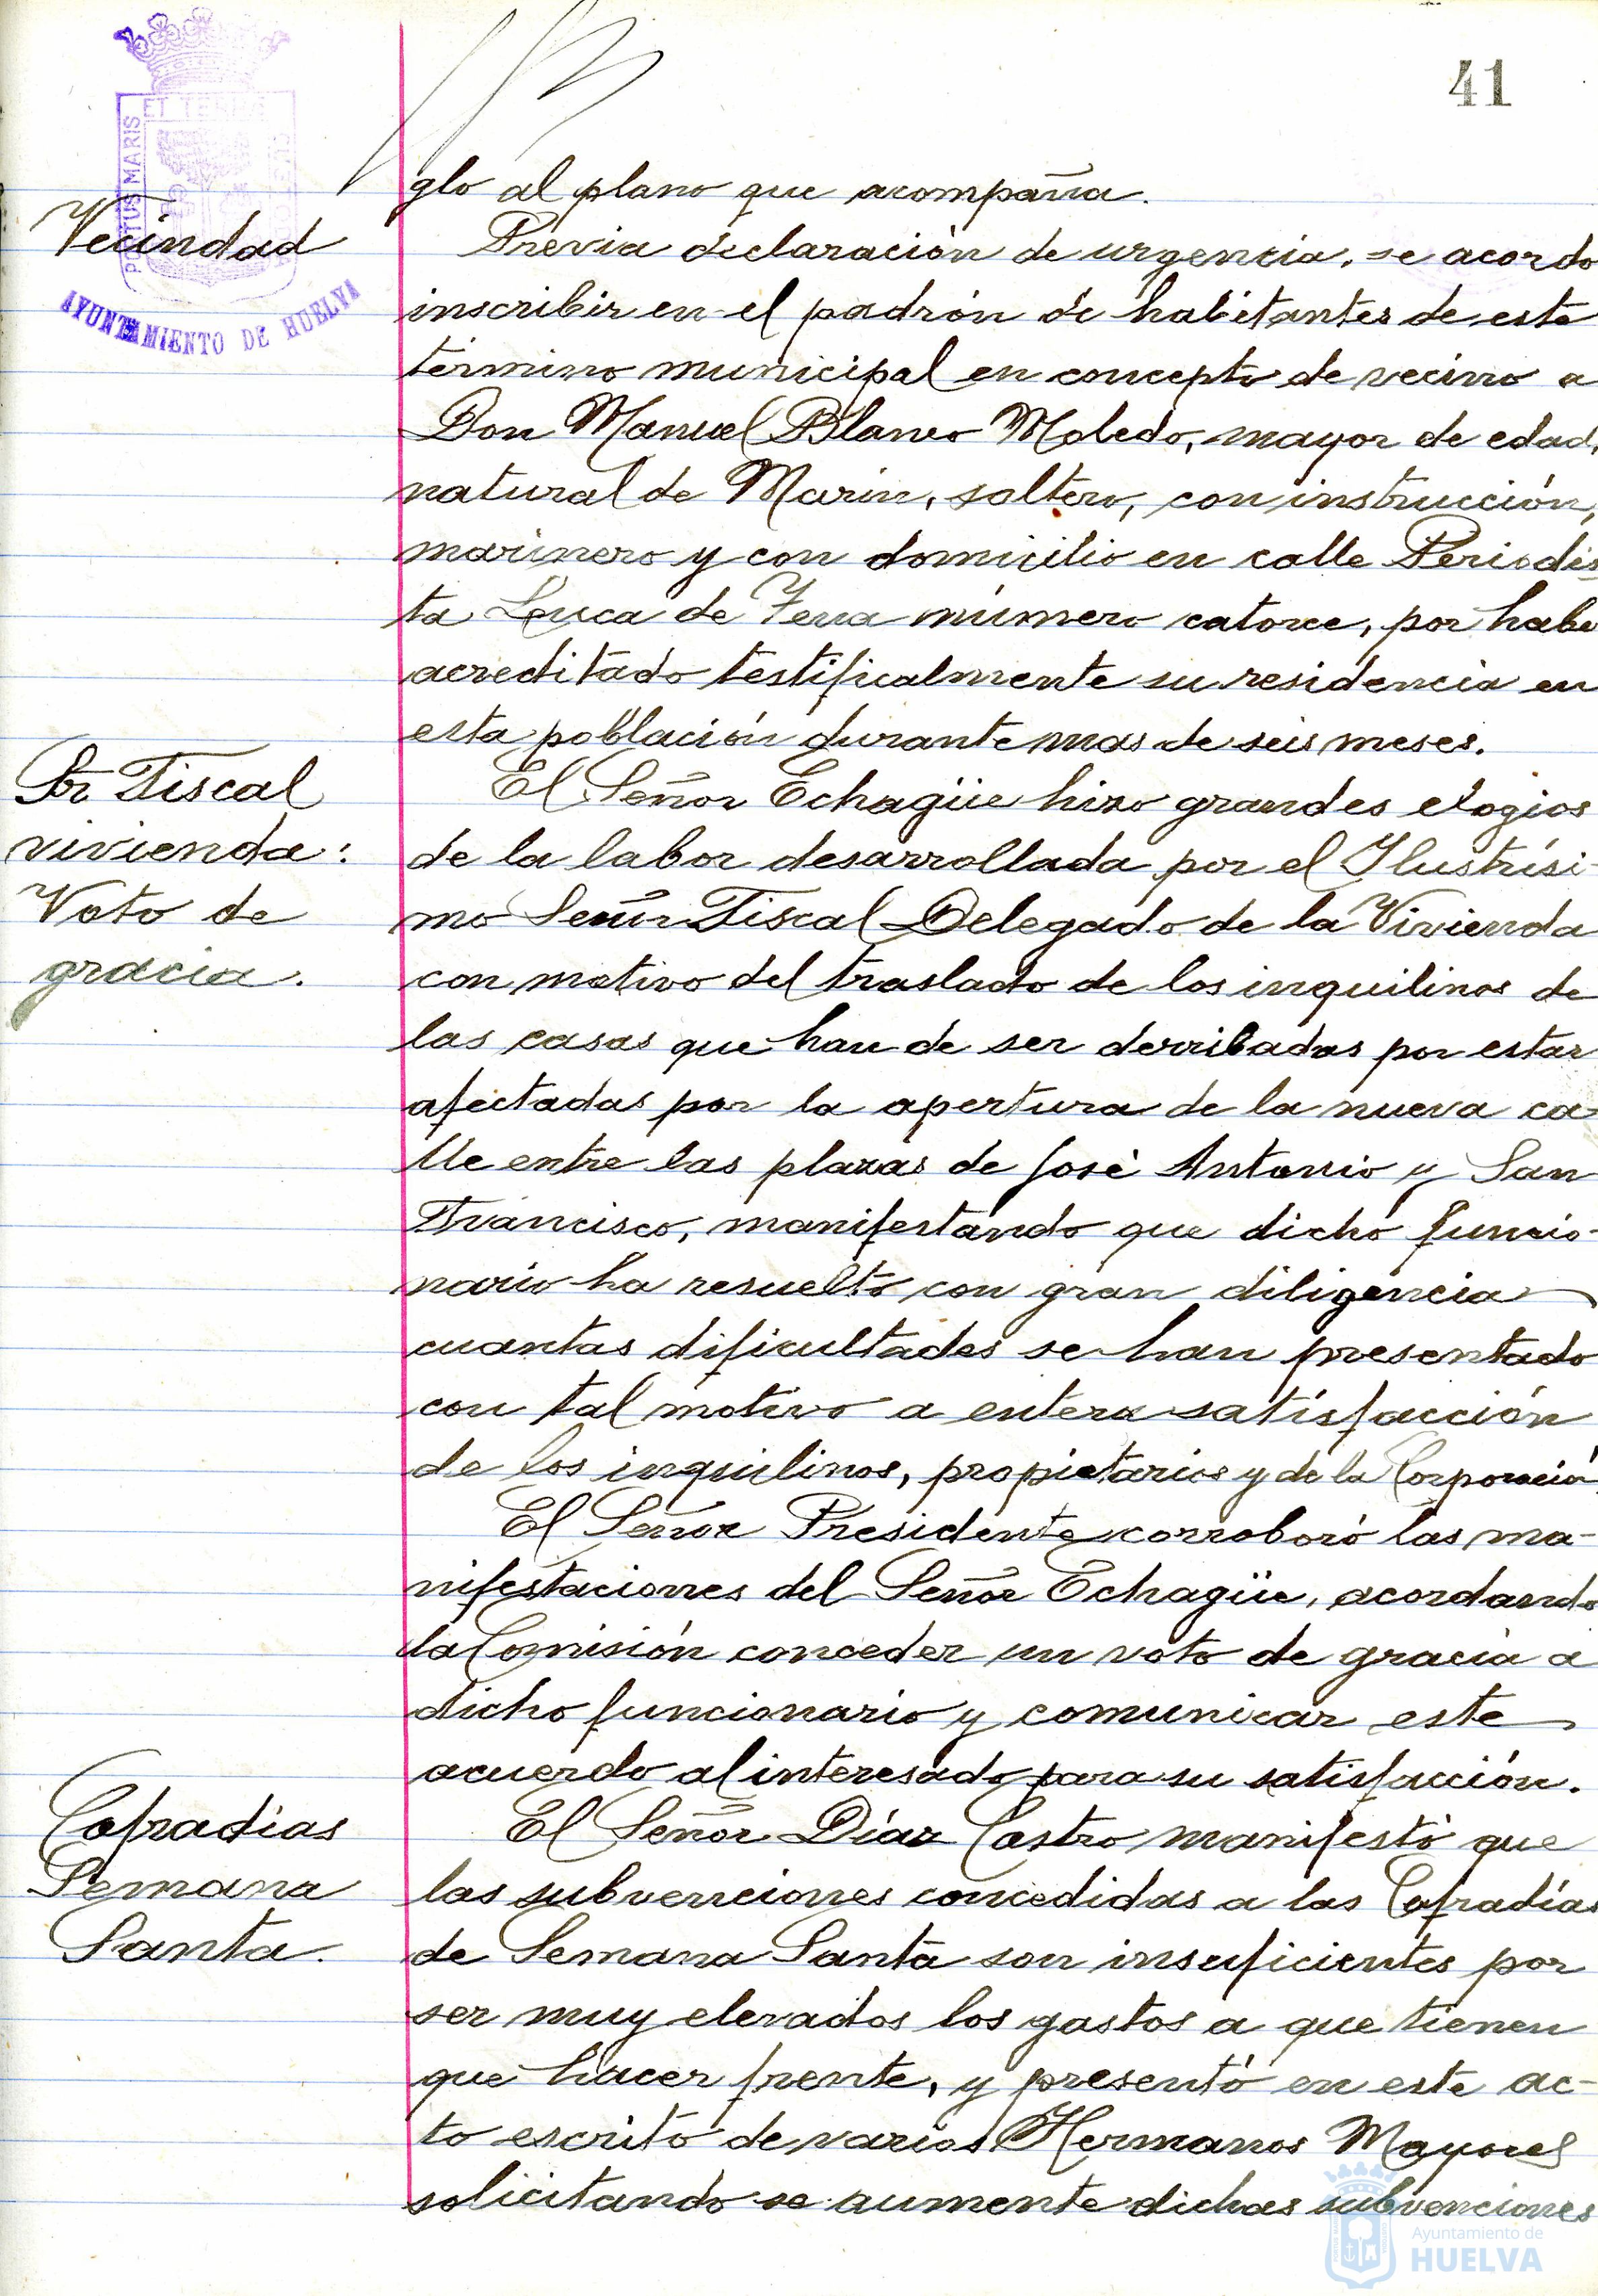 41
PORTUS MARIS ET TERRAE
AYUNTAMIENTO DE HUELVA
glo al plano que acompaña.
Vecindad
Previa declaración de urgencia, se acordo
inscribir en el padrón de habitantes de este
término municipal en concepto de vecino a
Don Manuel Blanco Moledo, mayor de edad,
natural de Marin, soltero, con instrucción,
marinero y con domicilio en calle Periodis
ta Luca de Tena número catorce, por habe
acreditado testificalmente su residencia en
esta población durante mas de seis meses.
Sr Fiscal
vivienda:
Voto de
gracia.
El Señor Echagüe hizo grandes elogios
de la labor desarrollada por el Ilustrísi-
mo Señor Fiscal Delegado de la Vivienda
con motivo del traslado de los inquilinos de
las casas que han de ser derribadas por estar
afectadas por la apertura de la nueva ca
lle entre las plazas de José Antonio y San
Francisco, manifestando que dicho funcio-
nario ha resuelto con gran diligencia
cuantas dificultades se han presentado
con tal motivo a entera satisfacción
de los inquilinos, propietarios y de la Corporación
El Señor Presidente corroboró las ma-
nifestaciones del Señor Echagüe, acordando
la Comisión conceder un voto de gracia a
dicho funcionario y comunicar este
acuerdo al interesado para su satisfacción.
Cofradias
Semana
Santa.
El Señor Díaz Castro manifestó que
las subvenciones concedidas a las Cofradías
de Semana Santa son insuficientes por
ser muy elevados los gastos a que tienen
que hacer frente, y presentó en este ac-
to escrito de varios Hermanos Mayores
solicitando se aumente dichas subvenciones
Ayuntamiento de
HUELVA